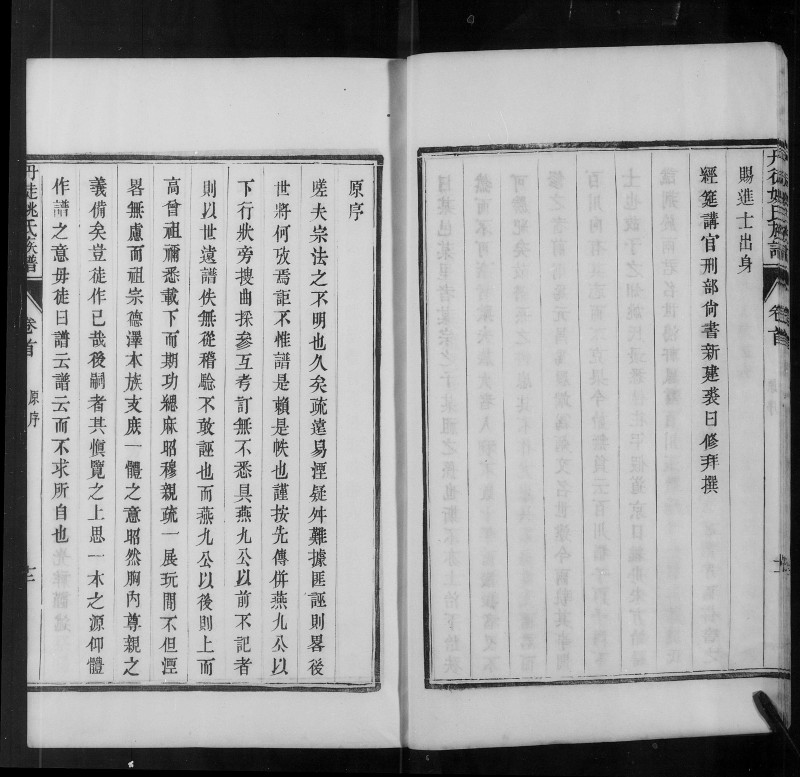 賜進士出身
經筵講官刑部尚書新建裘日修拜撰
丹徒姚氏族譜
卷首
原序
嗟夫宗法之不明也久矣疏遠易湮疑舛難據匪誣則畧後
世將何攷焉詎不惟譜是賴是帙也謹按先傳併燕九公以
下行狀旁搜曲採參互考訂無不悉具燕九公以前不記者
則以世遠譜佚無從稽驗不敢誣也而燕九公以後則上而
高曾祖禰悉載下而期功緦麻昭穆親疏一展玩間不但湮
畧無慮而祖宗德澤本族支庶一體之意昭然胸內尊親之
義備矣豈徒作已哉後嗣者其愼覽之上思一木之源仰體
作譜之意毋徒曰譜云譜云而不求所自也
丹徒姚氏族譜
卷首
原序
十二